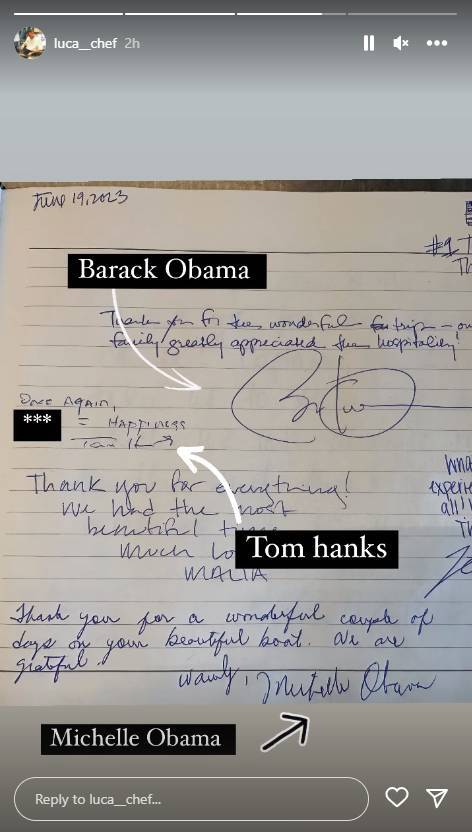 luca__chef 2h
June 19, 2023
#1 T
Th
Barack Obama
Thank you for the wonderful trip - ou
family greatly appreciated the hospitality!
Once Again,
*** = HAPPINESS
Thank you for everything!
We had the most
beautiful time
Much Lo
MALIA
experie
all!
Th
Tom hanks
Thank you for a wonderful couple of
days on your beautiful boat. We are
grateful.
Warmly, Michelle Obama
Michelle Obama
Reply to luca__chef...